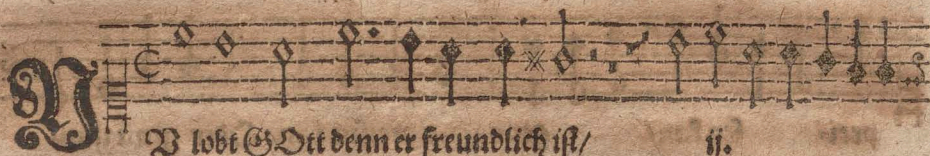 NV lobt GOtt denn er freundlich ist/ ij.